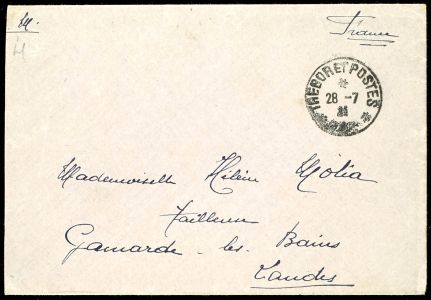 France
TRESOR ET POSTES
28 -7
Mademoiselle Hélène Molia
Tailleuse
Gamarde-les-Bains
Landes